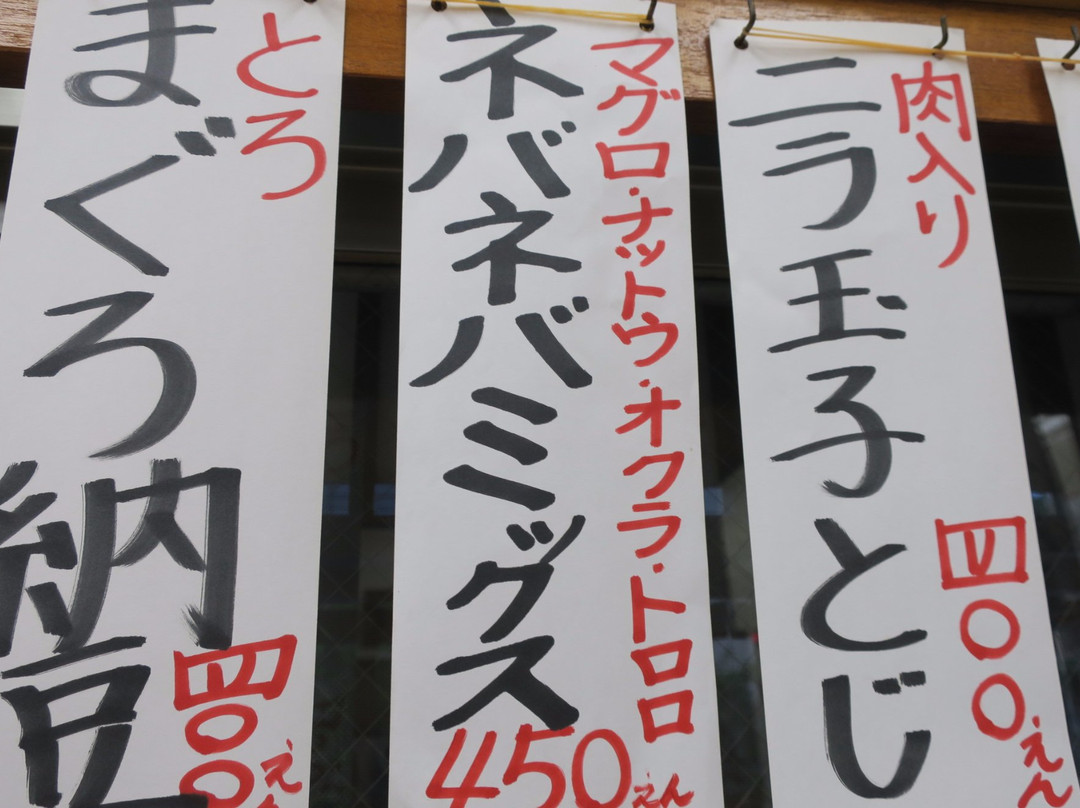 肉入り
ニラ玉子とじ
四〇〇えん
マグロ・ナットウ・オクラ・トロロ
ネバネバミックス
450えん
とろ
まぐろ納豆
四〇〇えん